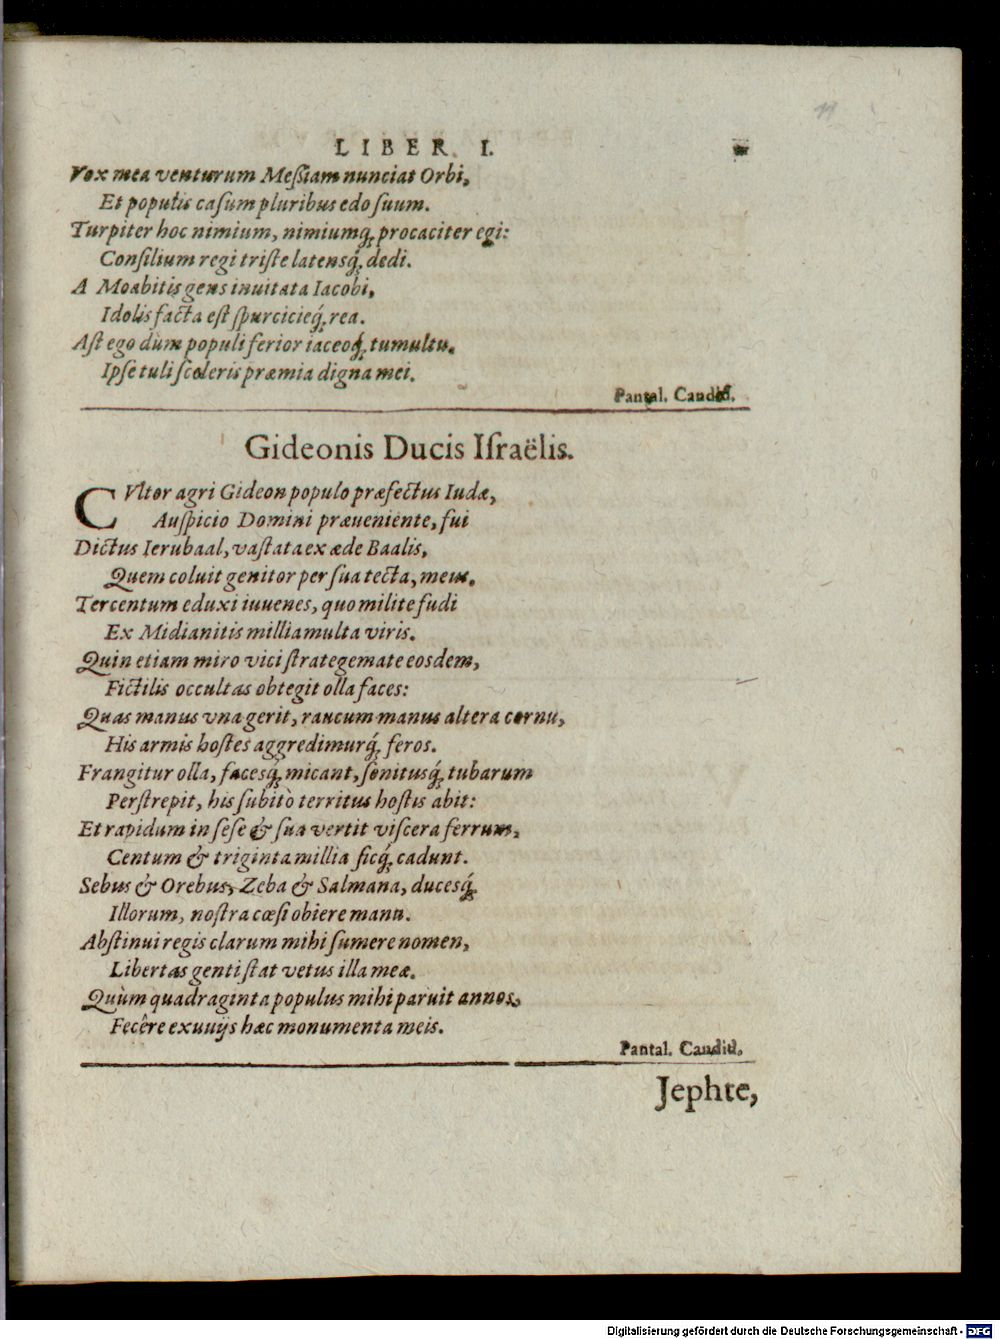 11
LIBER I.
Vox mea venturum Meſsiam nunciat Orbi,
Et populis caſum pluribus edo ſuum.
Turpiter hoc nimium, nimiumq́; procaciter egi:
Conſilium regi triſte latensq́; dedi.
A Moabitis gens inuitata Iacobi,
Idolis facta eſt ſpurcicieq́; rea.
Aſt ego dum populi ferior iaceoq́; tumultu.
Ipſe tuli ſceleris præmia digna mei.
Pantal. Candid.
Gideonis Ducis Iſraëlis.
CVltor agri Gideon populo præfectus Iudæ,
Auſpicio Domini præueniente, fui
Dictus Ierubaal, vaſtata ex æde Baalis,
Quem coluit genitor per ſua tecta, meus.
Tercentum eduxi iuuenes, quo milite fudi
Ex Midianitis millia multa viris.
Quin etiam miro vici ſtrategemate eosdem,
Fictilis occultas obtegit olla faces:
Quas manus vna gerit, raucum manus altera cornu,
His armis hoſtes aggredimurq́; feros.
Frangitur olla, facesq́; micant, ſonitusq́; tubarum
Perſtrepit, his ſubitò territus hoſtis abit:
Et rapidum in ſeſe & ſua vertit viſcera ferrum,
Centum & triginta millia ſicq́; cadunt.
Sebus & Orebus, Zeba & Salmana, ducesq́;
Illorum, noſtra cæſi obiere manu.
Abſtinui regis clarum mihi ſumere nomen,
Libertas genti ſtat vetus illa meæ.
Quùm quadraginta populus mihi paruit annos,
Fecêre exuuijs hæc monumenta meis.
Pantal. Candid.
Jephte,
Digitalisierung gefördert durch die Deutsche Forschungsgemeinschaft - DFG